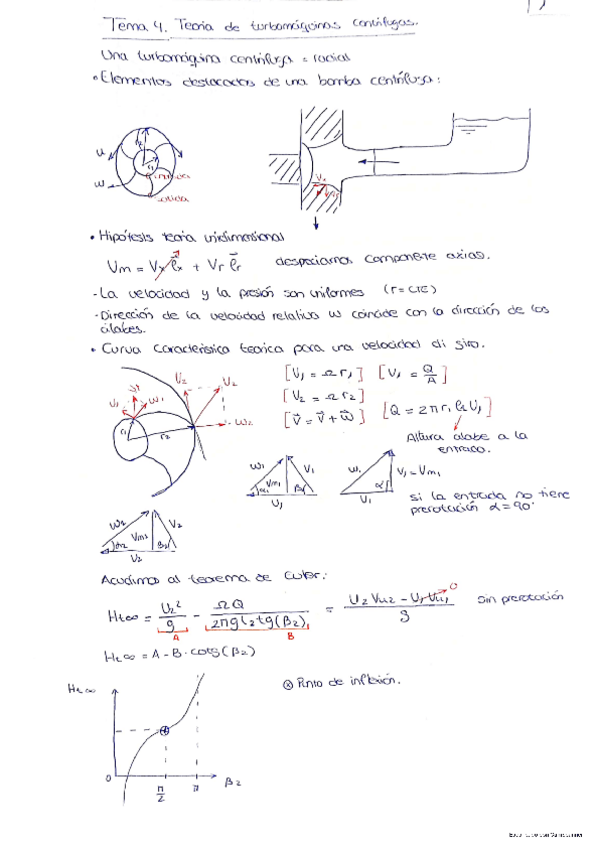 Tema 4. Teoría de turbomáquinas centrífugas.
Una turbomáquina centrífuga = radial
• Elementos destacados de una bomba centrífuga:
u
w
r2
r1
entrada
salida
• Hipótesis teoría unidimensional
Vm = Vx ex + Vr er despreciamos componente axial.
- La velocidad y la presión son uniformes (r = CTE)
- Dirección de la velocidad relativa w coincide con la dirección de los álabes.
• Curva característica teórica para una velocidad di giro.
[U1 = Ω r1] [V1 = Q/A]
[U2 = Ω r2]
[V = V + w] [Q = 2π r1 l2 U1]
r1
r2
U2
V2
w2
Altura alabe a la
entrada.
w1
Vm1
V1
U1
w1
α
V1 = Vm1
U1
si la entrada no tiene
prerotación α = 90°
w2
Vm2
V2
α2
β2
V2
Acudimos al teorema de Euler:
Ht∞ = U2²/g - ΩQ/2πg l2 tg(β2) = U2 Vu2 - U1 Vu1/g Sin prerotación
0
A
B
Ht∞ = A - B · cotg(β2)
Ht∞
⊗ Punto de inflexión.
0
π/2
π
β2